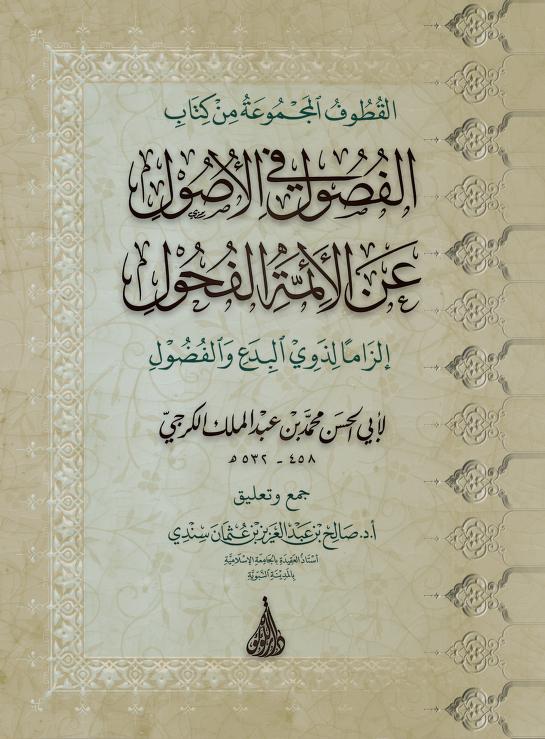 القُطُوفُ المَجْمُوعَةُ مِنْ كِتَابِ
الفُصُولِ فِي الأُصُولِ
عَنِ الأَئِمَّةِ الفُحُولِ
إِلزَامًا لِذَوِيْ البِدَعِ وَالفُضُوْلِ
لأبي الحسَن محمَّد بْن عبْد الملك الكرجيّ
٤٥٨ - ٥٣٢ هـ
جمع وتعليق
أ.د. صَالِح بْن عَبْد العَزِيزِ بْنِ عُثْمَانَ سِنْدِي
أستاذُ العَقِيدَةِ بِالجَامِعَةِ الإِسْلَامِيَّةِ
بِالمَدِينَةِ النَّبَوِيَّةِ
دار اللؤلؤة